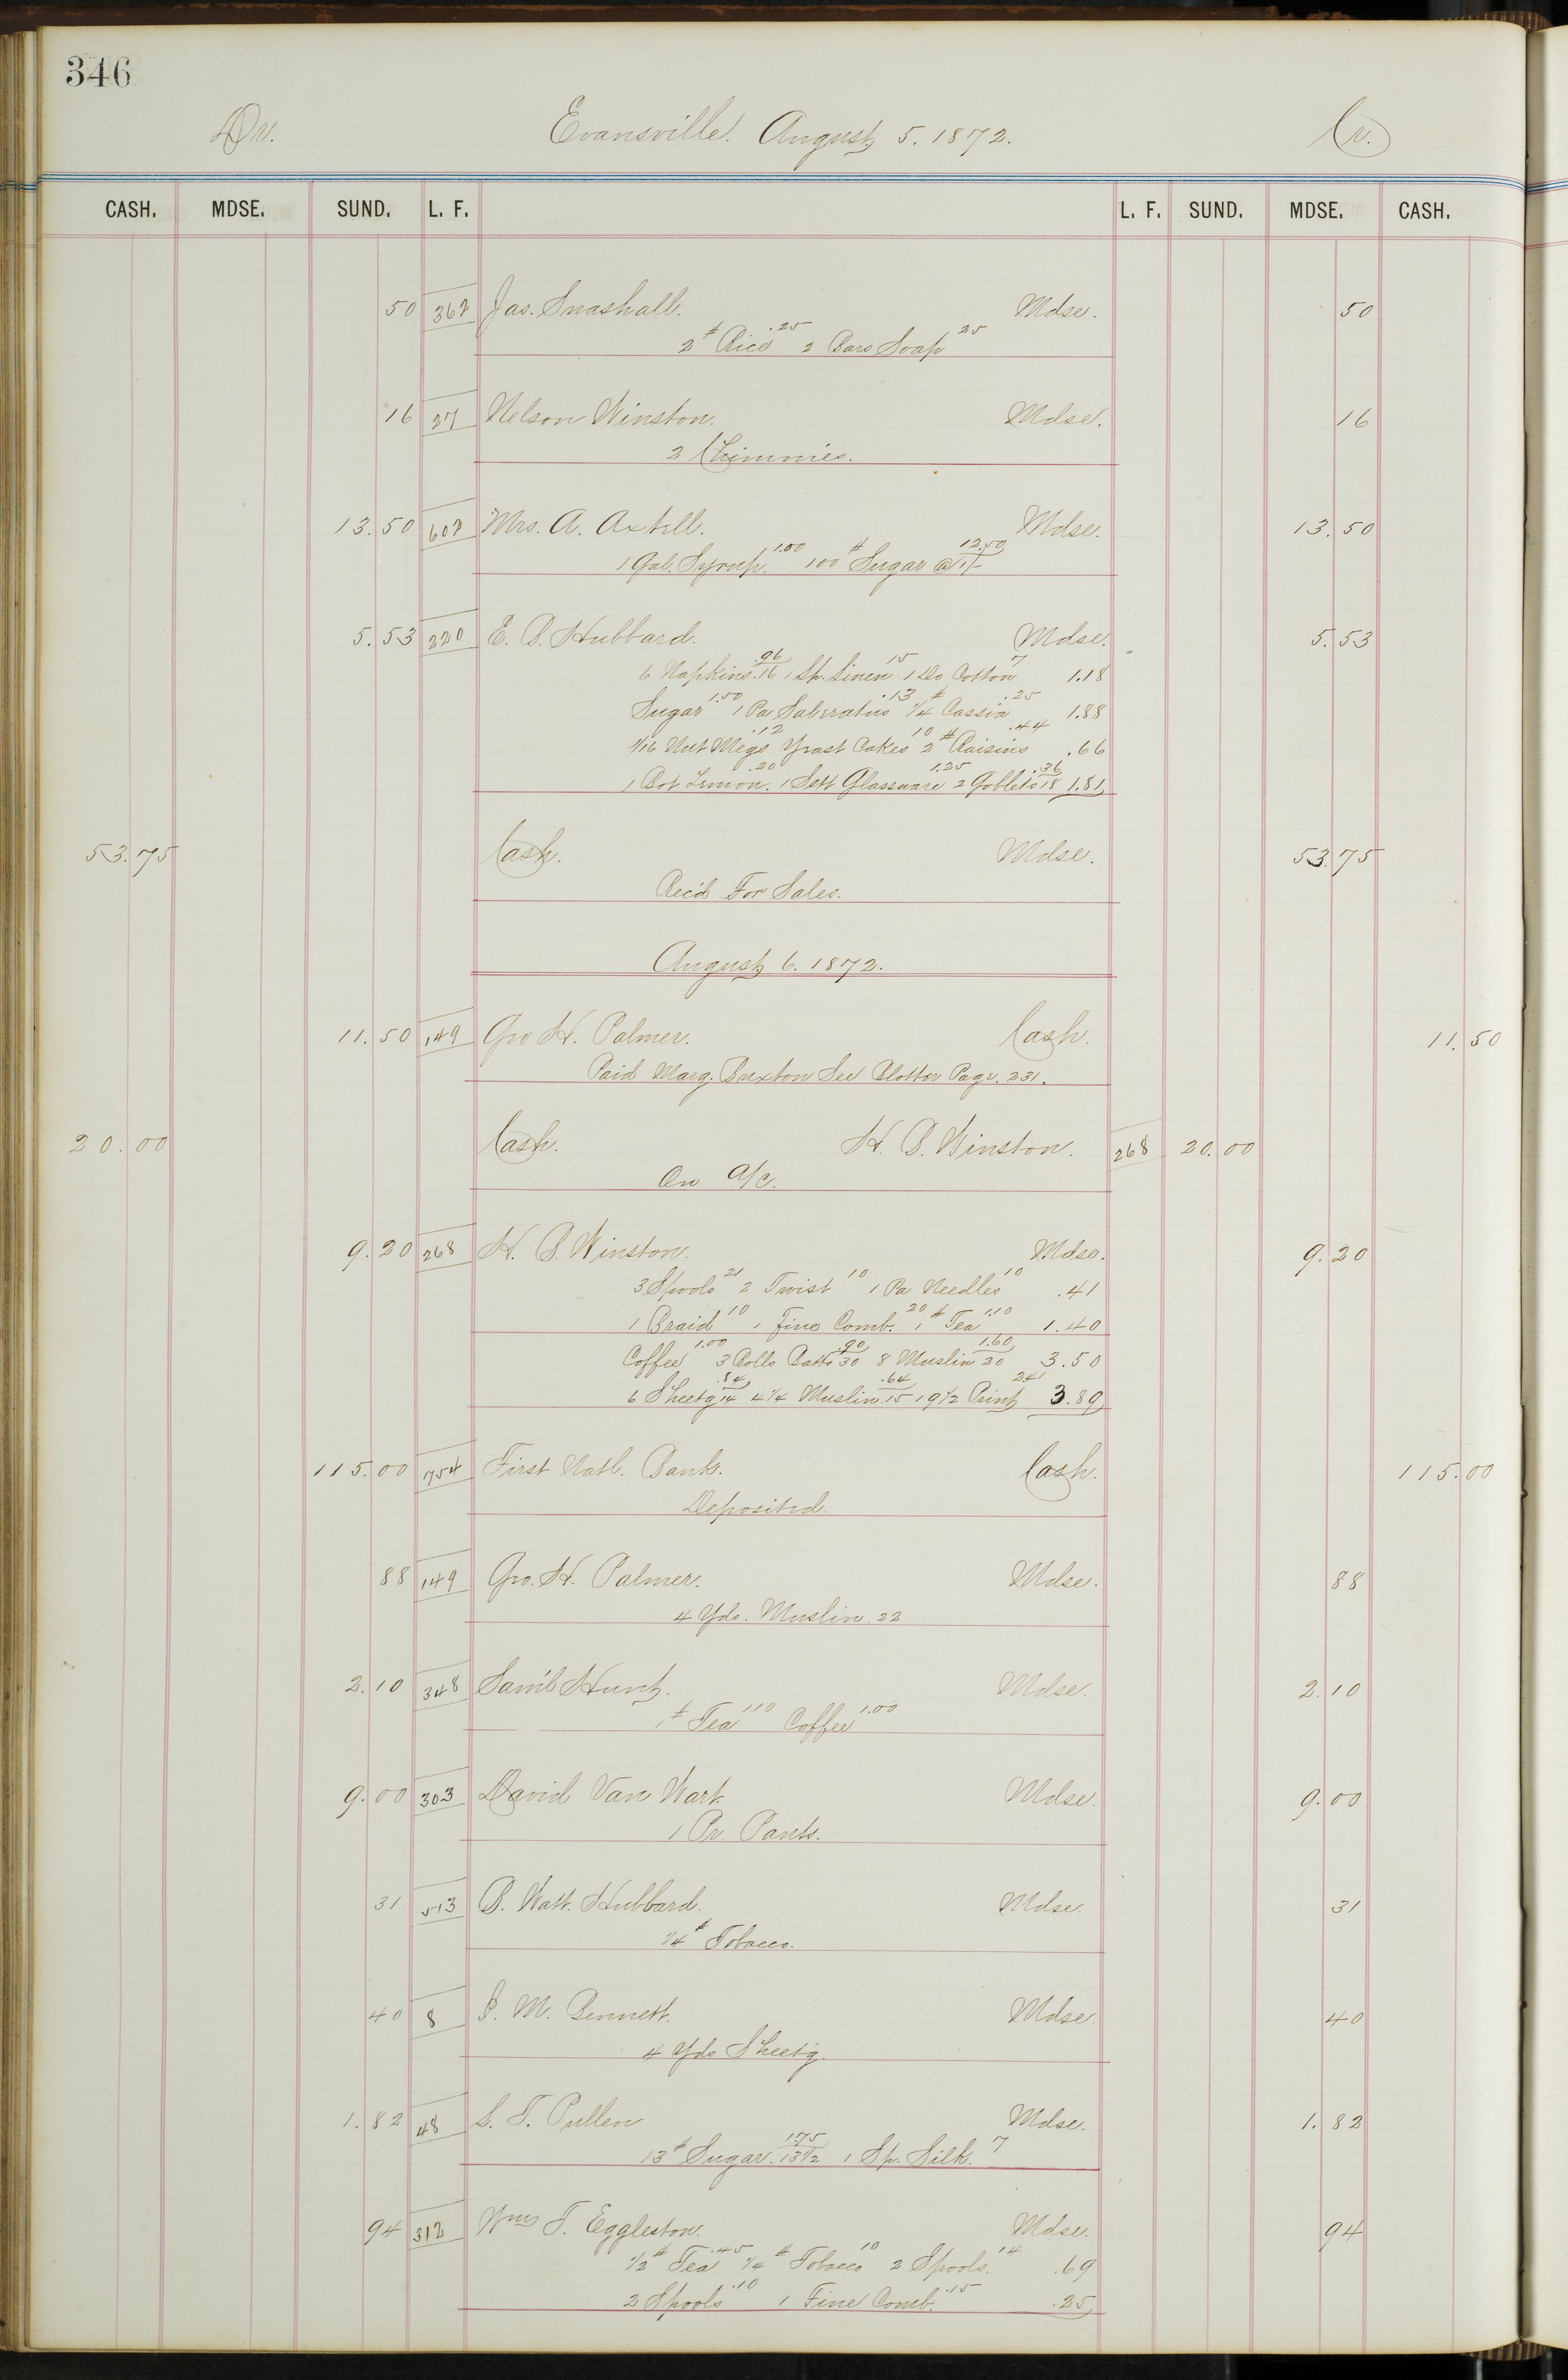 346
Dr. Evansville. August 5. 1872. Cr.
CASH. MDSE. SUND. L. F. L. F. SUND. MDSE. CASH.
50 362 Jas. Snashall. Mdse. 50
2# Rice .25 2 Bars Soap 25
16 27 Nelson Winston. Mdse. 16
2 Chimnies.
13.50 602 Mrs. A. Axtell. Mdse. 13.50
1 Gal. Syrup. 1.00 100# Sugar @ 1/- 12.50
5.53 220 E. B. Hubbard. Mdse. 5.53
6 Napkins .16 .96 1 Sp. Linen 15 1 Do Cotton 7 1.18
Sugar 1.50 1 Pa Saleratus .13 1/4# Cassia .25 1.88
1/16 Nut Megs .12 Yeast Cakes 10 2# Raisins .44 .66
1 Bot Lemon. .20 1 Sett Glassware 1.25 2 Goblets 18 .36 1.81
53.75 Cash. Mdse. 53.75
Rec'd For Sales.
August 6. 1872.
11.50 149 Geo H. Palmer. Cash. 11.50
Paid Marg. Buxton See Blotter Page. 231.
20.00 Cash. H. B. Winston. 268 20.00
On a/c.
9.20 268 H. B. Winston. Mdse. 9.20
3 Spools 21 2 Twist 10 1 Pa Needles 10 .41
1 Braid 10 1 Fine Comb. 20 1# Tea 1.10 1.40
Coffee 1.00 3 Rolls Batts 30 .90 8 Muslin 20 1.60 3.50
6 Sheetg 14 .84 4 1/4 Muslin 15 .64 19 1/2 Print 241 3.89
115.00 754 First Natl. Bank. Cash. 115.00
Deposited.
88 149 Geo. H. Palmer. Mdse. 88
4 Yds. Muslin 22
2.10 348 Sam'l Hunt. Mdse. 2.10
1# Tea 110 Coffee 1.00
9.00 303 David Van Wart. Mdse. 9.00
1 Pr. Pants.
31 513 B. Watt. Hubbard. Mdse. 31
1/4# Tobacco.
40 8 M. Bennett. Mdse. 40
4 Yds Sheetg.
1.82 48 S. T. Pullen Mdse. 1.82
13# Sugar. 13 1/2 1.75 1 Sp. Silk. 7
94 312 Wm T. Eggleston. Mdse. 94
1/2# Tea .45 1/4# Tobacco 10 2 Spools. 14 .69
2 Spools .10 1 Fine Comb. .15 .25